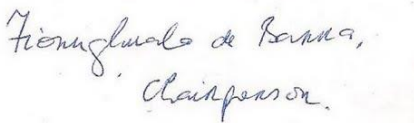 Fionnghuala de Barra,
Chairperson.